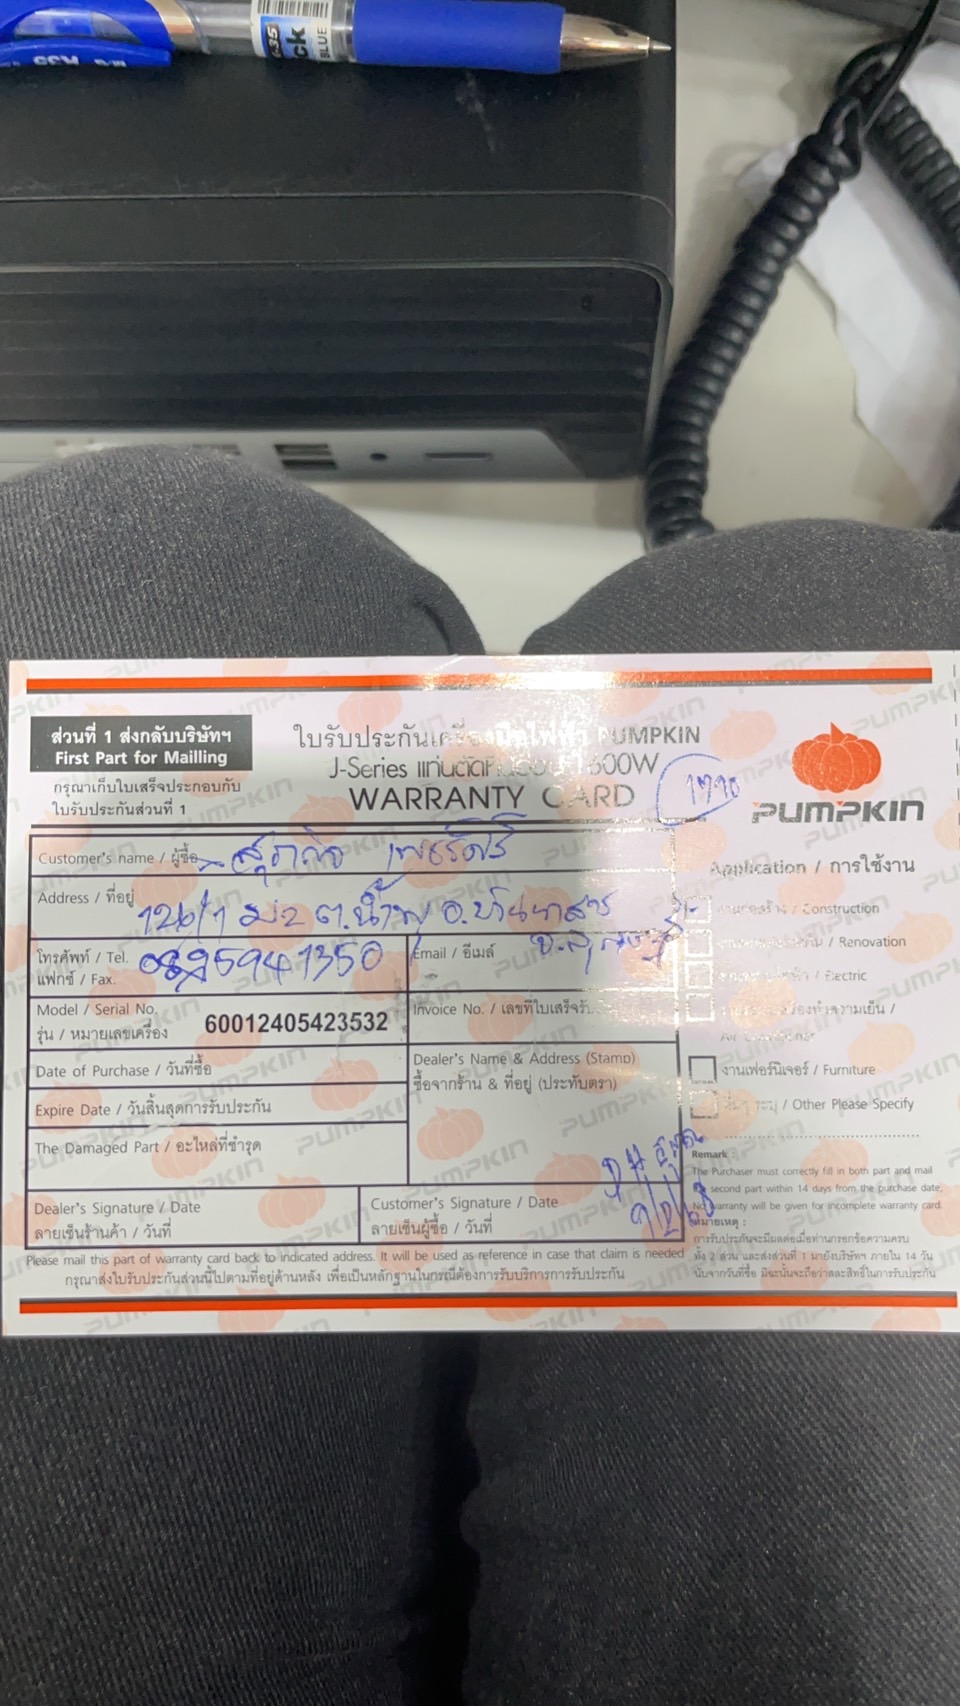 BLUE
ส่วนที่ 1 ส่งกลับบริษัทฯ
First Part for Mailling
กรุณาเก็บใบเสร็จประกอบกับ
ใบรับประกันส่วนที่ 1
ใบรับประกันเครื่องมือไฟฟ้า PUMPKIN
J-Series แท่นตัด
WARRANTY CARD
PUMPKIN
Customer's name / ผู้ซื้อ
Address / ที่อยู่ 126/1 ม.2 ต.น้ำพุ อ.บ้านนาสาร
โทรศัพท์ / Tel.
แฟกซ์ / Fax.
Email / อีเมล์
Model / Serial No.
รุ่น / หมายเลขเครื่อง
60012405423532
Invoice No. / เลขที่ใบเสร็จรับ
Date of Purchase / วันที่ซื้อ
Expire Date / วันสิ้นสุดการรับประกัน
The Damaged Part / อะไหล่ที่ชำรุด
Dealer's Name & Address (Stamp)
ซื้อจากร้าน & ที่อยู่ (ประทับตรา)
Dealer's Signature / Date
ลายเซ็นร้านค้า / วันที่
Customer's Signature / Date
ลายเซ็นผู้ซื้อ / วันที่
Please mail this part of warranty card back to indicated address. It will be used as reference in case that claim is needed
กรุณาส่งใบรับประกันส่วนนี้ไปตามที่อยู่ด้านหลัง เพื่อเป็นหลักฐานในกรณีต้องการรับบริการการรับประกัน
Application / การใช้งาน
/ Construction
/ Renovation
/ Electric
งานเฟอร์นิเจอร์ / Furniture
/ Other Please Specify
Remark :
The Purchaser must correctly fill in both part and mail
second part within 14 days from the purchase date,
No warranty will be given for incomplete warranty card.
หมายเหตุ :
การรับประกันจะมีผลต่อเมื่อท่านกรอกข้อความครบ
ทั้ง 2 ส่วน และส่งส่วนที่ 1 มายังบริษัทฯ ภายใน 14 วัน
นับจากวันที่ซื้อ มิฉะนั้นจะถือว่าสละสิทธิ์ในการรับประกัน